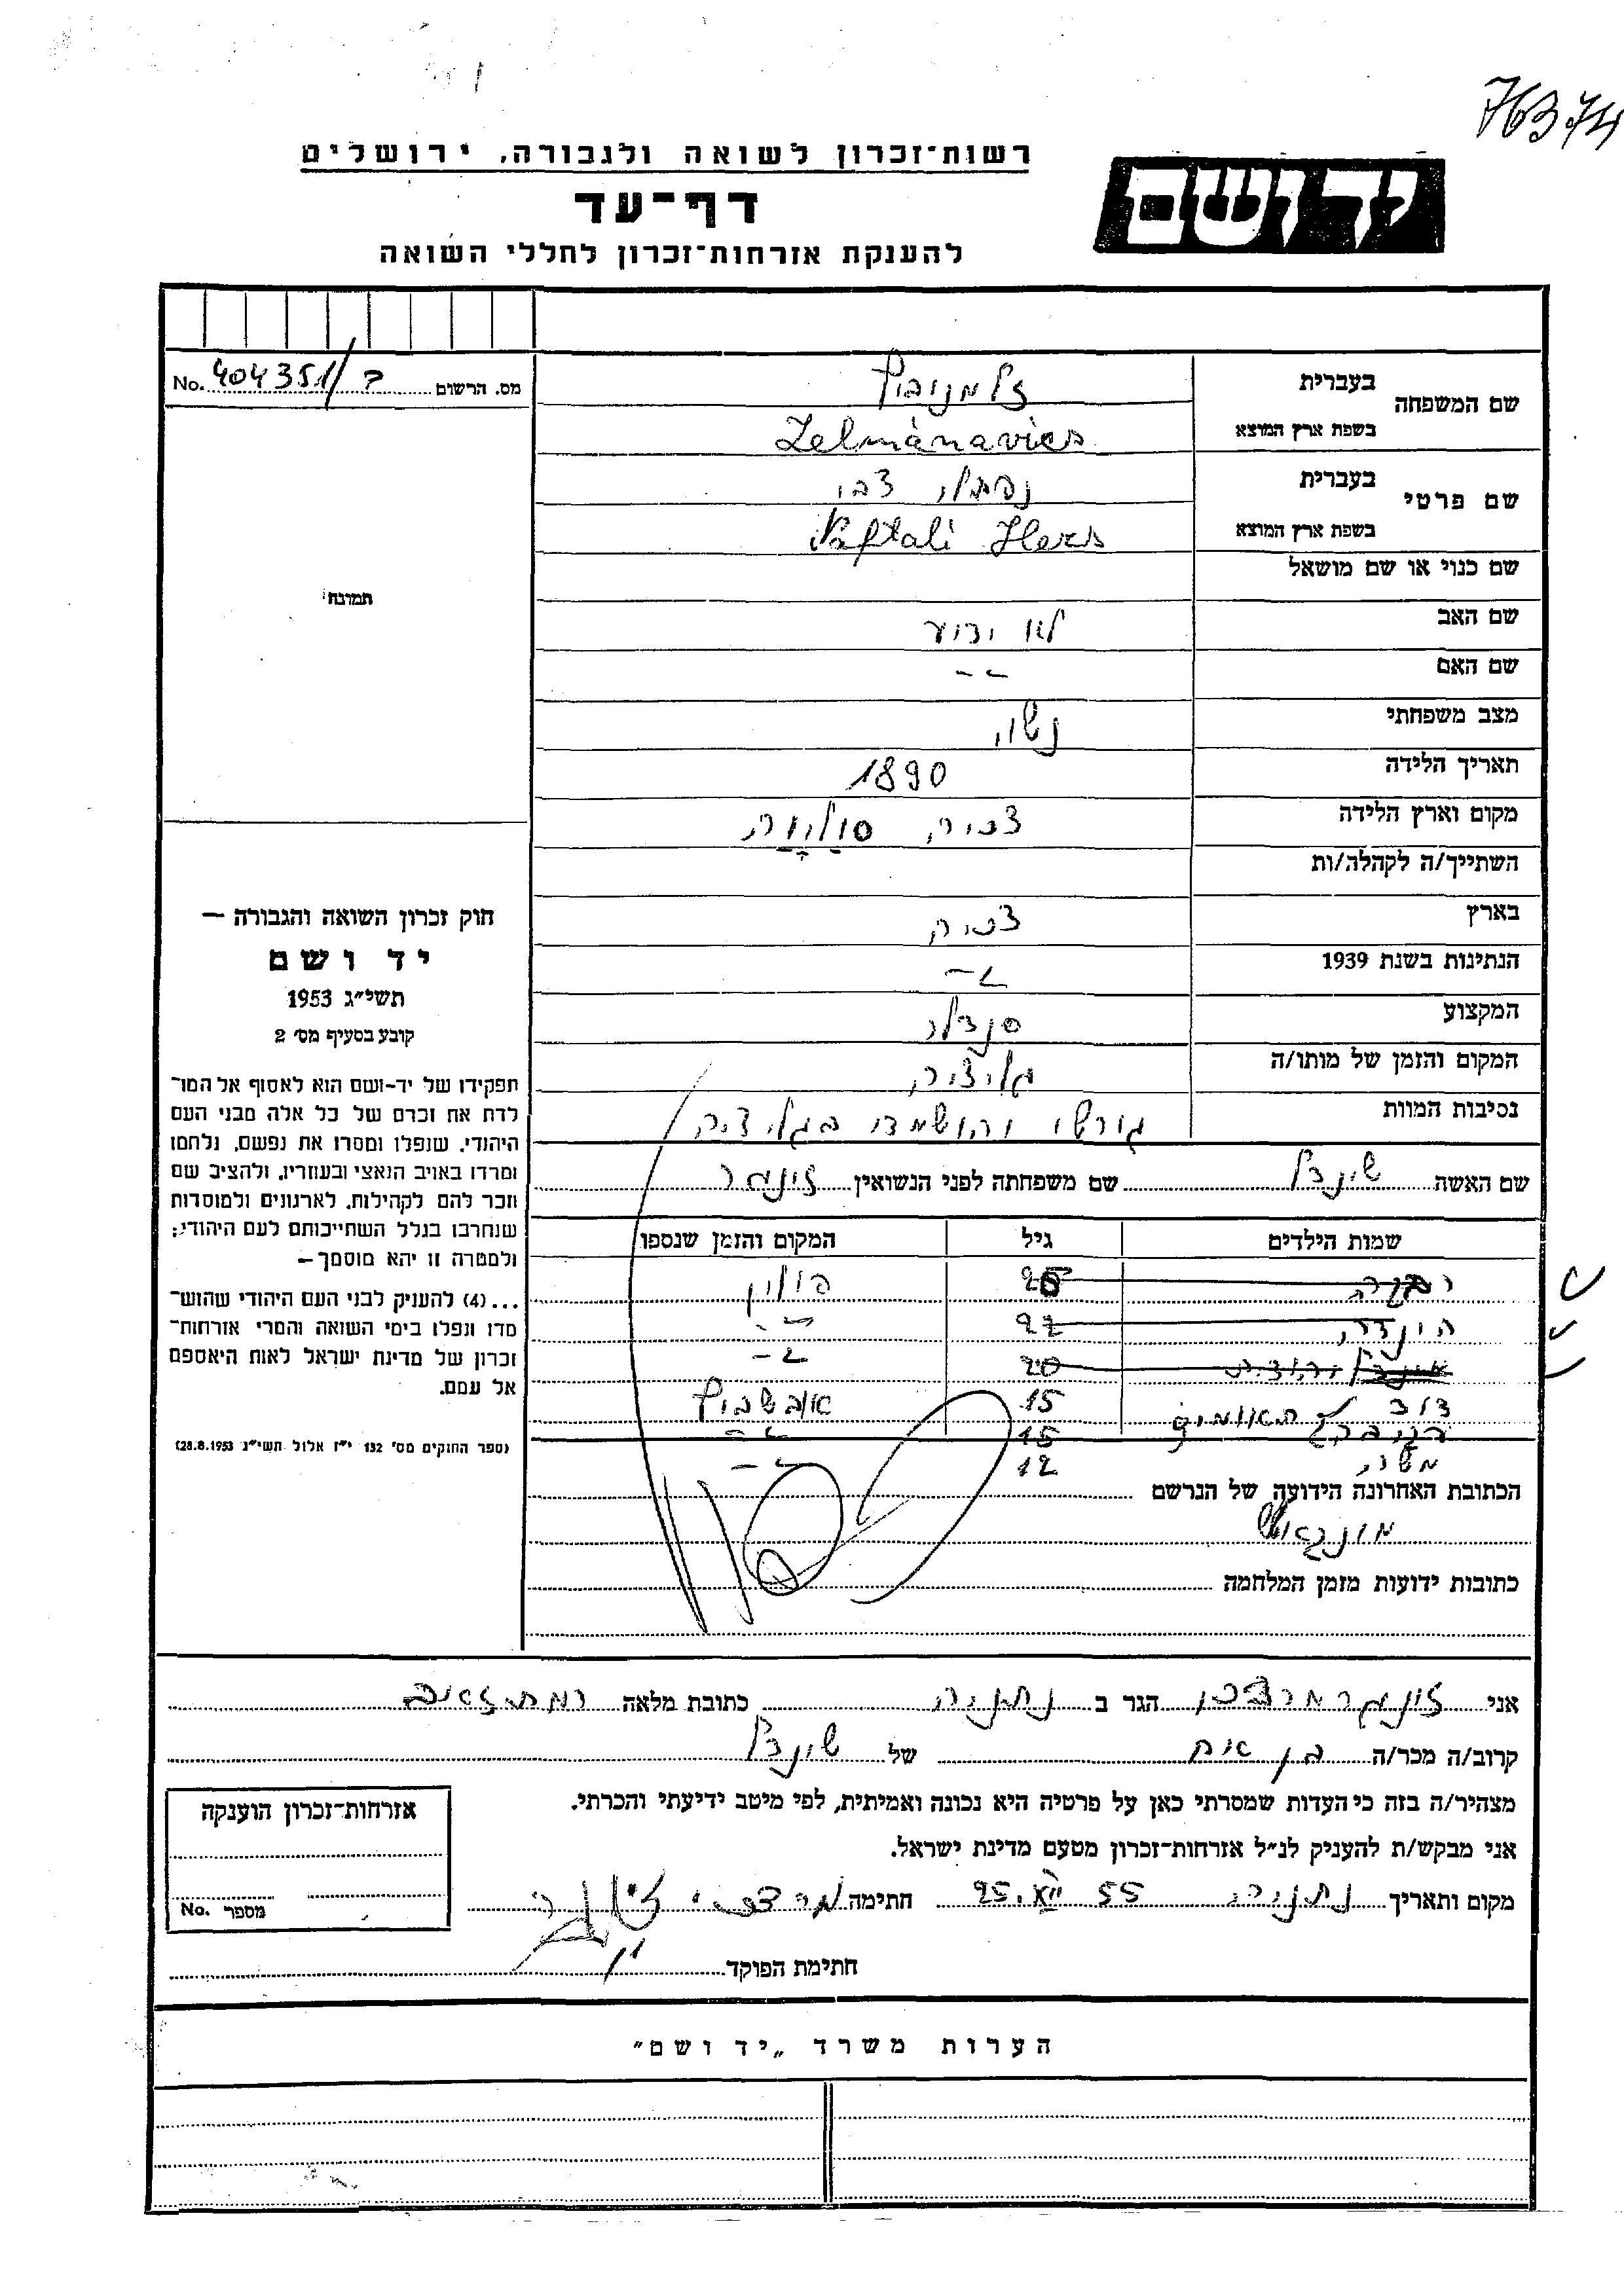 76374
רשות־זכרון לשואה ולגבורה, ירושלים
יד ושם
דף־עד
להענקת אזרחות־זכרון לחללי השואה
מס. הרשום 404351/ No.
שם המשפחה
בעברית זלמנוביץ
בשפת ארץ המוצא Zelmánavics
שם פרטי
בעברית נפתלי צבי
בשפת ארץ המוצא Naftali Hers
שם כנוי או שם מושאל
שם האב לא ידוע
שם האם
מצב משפחתי נשוי
תאריך הלידה 1890
מקום וארץ הלידה צכיה,
השתייך/ה לקהלה/ות
בארץ צכיה
הנתינות בשנת 1939
המקצוע סנדלר
המקום והזמן של מותו/ה גליציה
נסיבות המוות גורשו והושמדו בגליציה
שם האשה שינדל שם משפחתה לפני הנשואין זינגר
שמות הילדים גיל המקום והזמן שנספו
רבקה פולין
הינדה 22
20
דוב התאומים 15 אושביץ
15
משה 12
הכתובת האחרונה הידועה של הנרשם
כתובות ידועות מזמן המלחמה
תמונה
חוק זכרון השואה והגבורה —
יד ושם
תשי״ג 1953
קובע בסעיף מס׳ 2
תפקידו של יד-ושם הוא לאסוף אל המו־
לדת את זכרם של כל אלה מבני העם
היהודי, שנפלו ומסרו את נפשם, נלחמו
ומרדו באויב הנאצי ובעוזריו, ולהציב שם
וזכר להם לקהילות, לארגונים ולמוסדות
שנחרבו בגלל השתייכותם לעם היהודי;
ולמטרה זו יהא מוסמך —
... (4) להענק לבני העם היהודי שהוש־
מדו ונפלו בימי השואה והמרי אזרחות־
זכרון של מדינת ישראל לאות היאספם
אל עמם.
(ספר החוקים מס׳ 132 י״ז אלול תשי״ג 28.8.1953)
אני זינגר מרדכי הגר ב נתניה כתובת מלאה
קרוב/ה מכר/ה בן אח של שינדל
מצהיר/ה בזה כי העדות שמסרתי כאן על פרטיה היא נכונה ואמיתית, לפי מיטב ידיעתי והכרתי.
אני מבקש/ת להעניק לנ״ל אזרחות־זכרון מטעם מדינת ישראל.
מקום ותאריך נתניה 25. 55 חתימה מרדכי זינגר
חתימת הפוקד
אזרחות־זכרון הוענקה
מספר No.
הערות משרד „יד ושם״